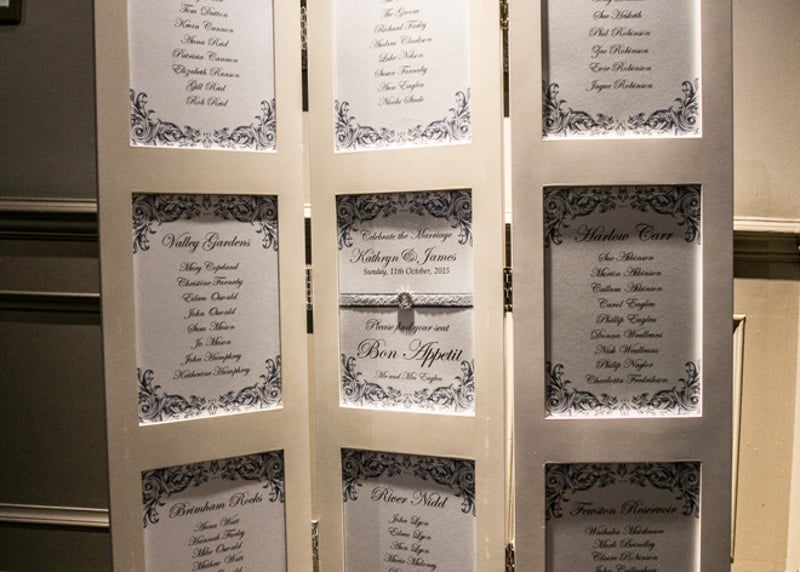 Tom Dutton
Kevin Cannon
Anna Reid
Patricia Cannon
Elizabeth Ranson
Gill Reid
Rob Reid
The Groom
Richard Farley
Andrea Clarkson
Luke Nelson
Susan Farnaby
Ann Eaglen
Nicola Steele
Sue Hesketh
Phil Robinson
Zoe Robinson
Evie Robinson
Jayne Robinson
Valley Gardens
Mary Copeland
Christine Farnaby
Eileen Oswald
John Oswald
Sam Mason
Jo Mason
John Humphrey
Katherine Humphrey
Celebrate the Marriage
Kathryn & James
Sunday, 11th October, 2015
Please find your seat
Bon Appetit
Mr and Mrs Eaglen
Harlow Carr
Sue Atkinson
Martin Atkinson
Callum Atkinson
Carol Eaglen
Phillip Eaglen
Donna
Nick
Philip Naylor
Charlotte Fredrickson
Brimham Rocks
Anna Watt
Hannah Farley
Mike Oswald
Matthew Watt
River Nidd
John Lyon
Eileen Lyon
Ann Lyon
Marie Maloney
Fewston Reservoir
Mark Brindley
Claire Robinson
John